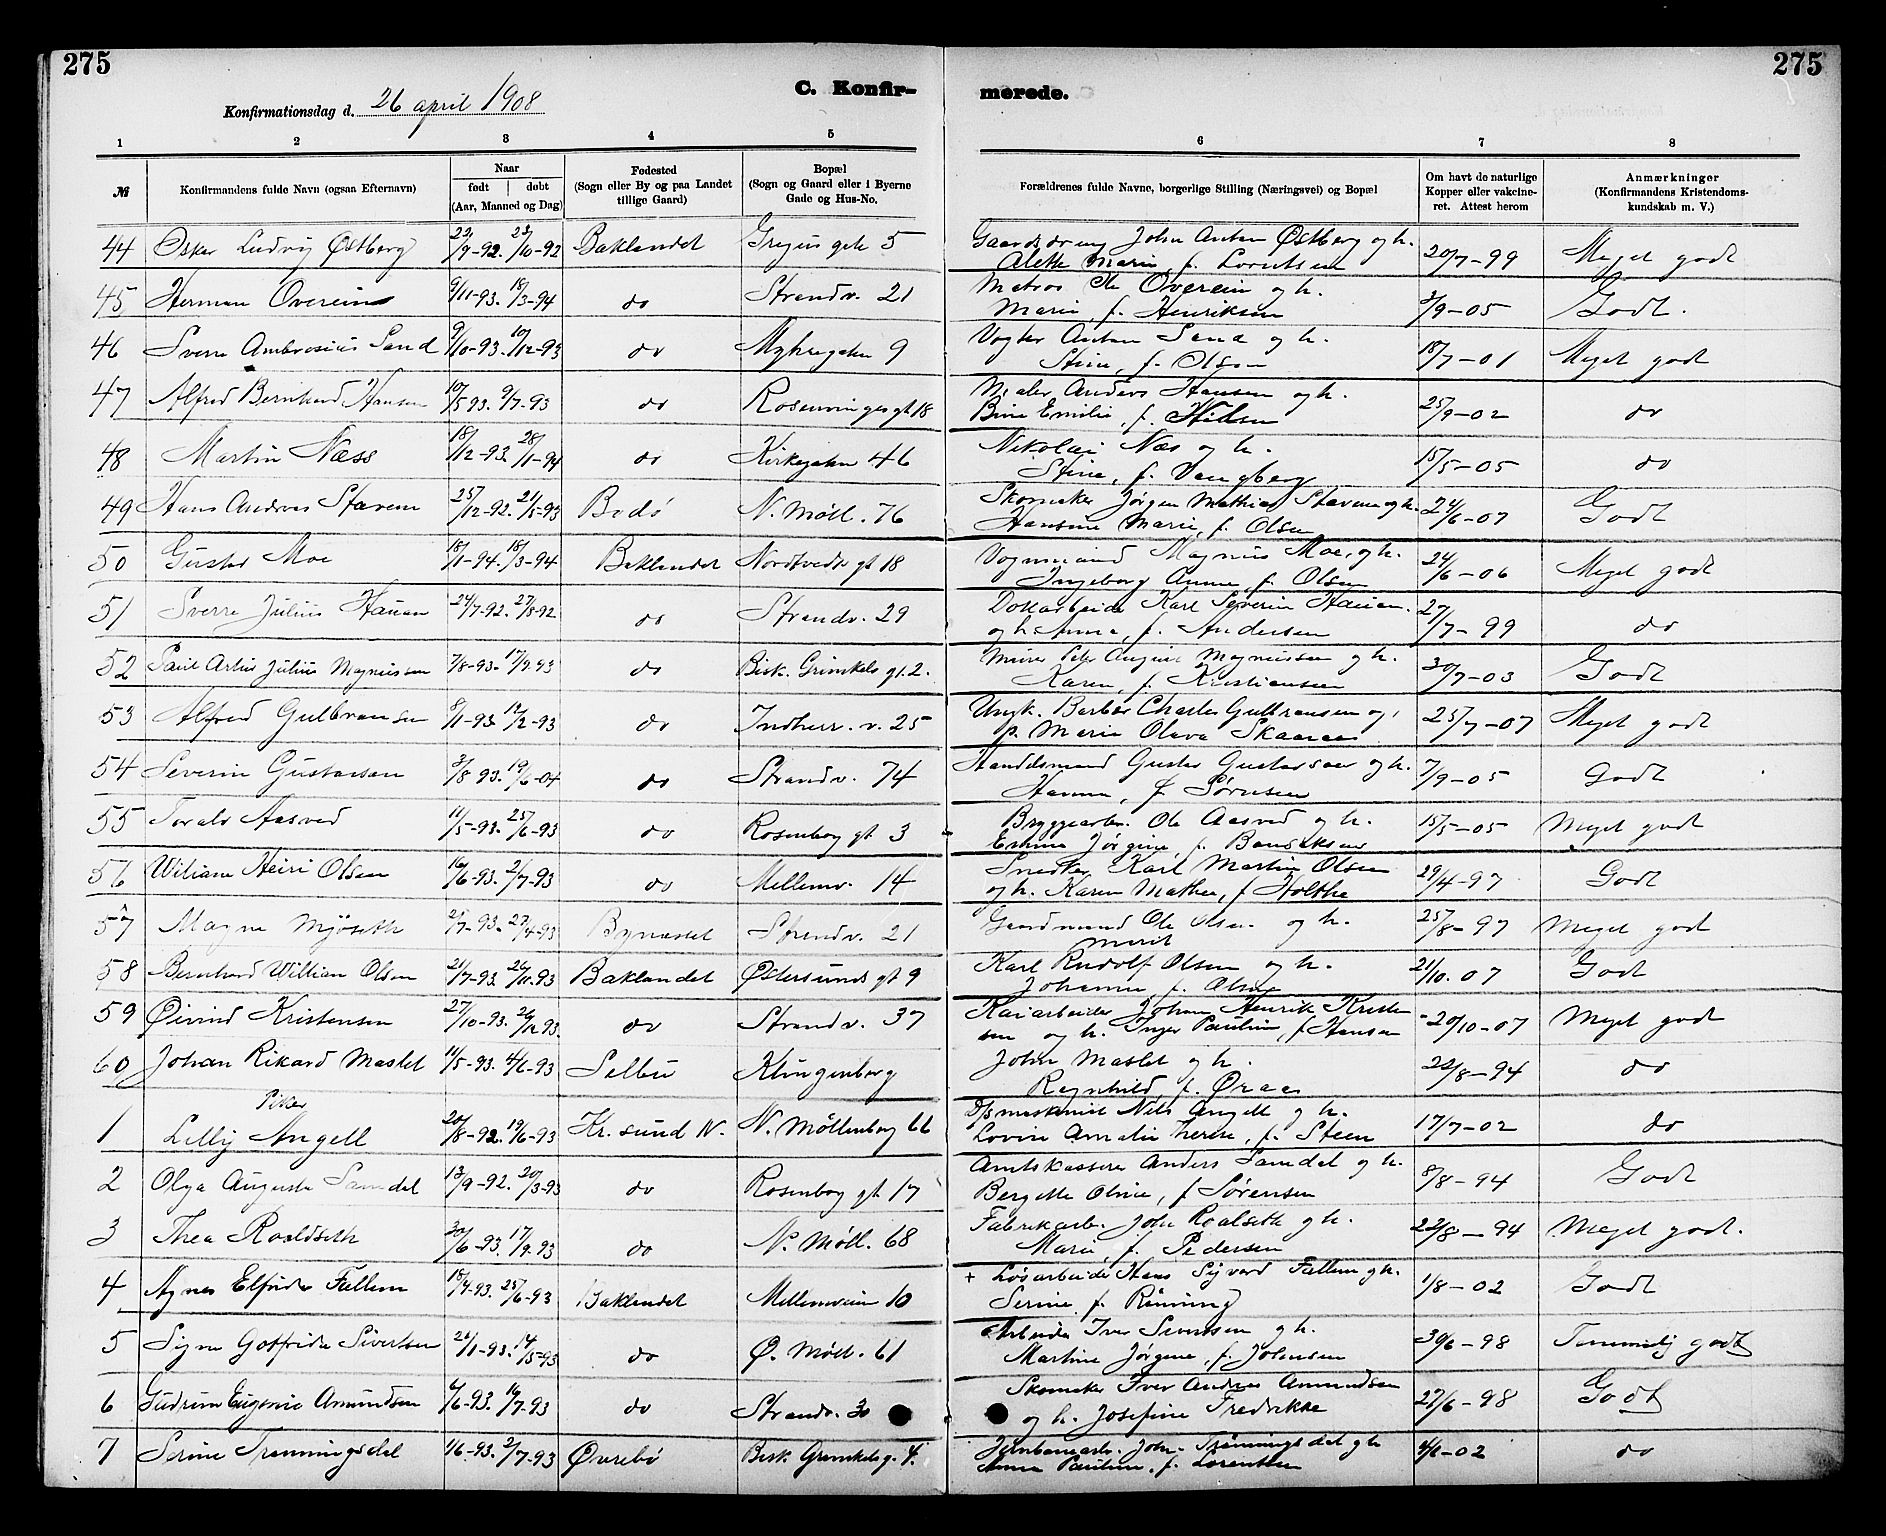 275
275
C. Konfir-
merede.
Konfirmationsdag d. 26 april 1908
1 2 3 4 5 6 7 8
№
Konfirmandens fulde Navn (ogsaa Efternavn)
Naar
født | døbt
(Aar, Maaned og Dag)
Fødested
(Sogn eller By og paa Landet
tillige Gaard)
Bopæl
(Sogn og Gaard eller i Byerne
Gade og Hus-No.
Forældrenes fulde Navne, borgerlige Stilling (Næringsvei) og Bopæl
Om havt de naturlige
Kopper eller vakcine-
ret. Attest herom
Anmærkninger
(Konfirmandens Kristendoms-
kundskab m. V.)
44 Oskar Ludvig Østberg 23/9-92. 23/10-92 Baklandet 5 John Anton Østberg og h. 20/7-99 Meget godt
Alette Marie, f. Lorntsen
45 Herman Overein 9/11-93. 18/3-94 do Strandv. 21 Matros Ole Overein og h. 3/9-05 Godt.
Marie, f. Henriksen
46 Sverre Ambrosius Sand 9/10-93. 10/12-93 do 9 Vogter Anton Sand og h. 18/7-01 Meget godt
Stine, f. Olsen
47 Alfred Bernhard Hansen 10/5 93. 9/7-93 do Rosenvinges gt 18 Maler Anders Hansen og h. 25/9-02 do
Emilie, f.
48 Martin Næss 18/12-93. 28/1-94 do Kirkegaten 46 Nikolai Næs og h. 15/5-05 do
Stine, f. Vangberg
49 Hans Andreas Stavem 25/12-92. 21/5-93 Bodø N. Møll. 76 Skomaker Jørgen Mathias og h. 24/6-07 Godt
Hansine Marie, f. Olsen
50 Gustav Moe 18/1-94. 18/3-94 Baklandet Nordtvedts gt 18 Vognmand Magnus Moe, og h. 24/6-06 Meget godt
Ingeborg Anna, f. Olsen
51 Sverre Julius Hauan 24/7-92. 27/8-92 do Strandv. 29 Dokarbeider Karl Severin Hauan. 27/7-99 do
og h. Anna, f. Andersen
52 Paul Julius Magnussen 7/8-93. 17/9.93 do Bisk. Grimkels gt. 2. Murer Peter August Magnussen og h. 30/7-03 Godt
Karen, f. Kristiansen
53 Alfred Gulbransen 8/1-93. 12/2-93 do Indherr. v. 25 Ungk. Barber Charles Gulbransen og 25/7-07 Meget godt
p. Marie Olava Skaaraas
54 Severin Gustavsen 3/8 93. 19/6-04 do Strandv. 74 Handelsmand Gustav Gustavsen og h. 7/9-05 Godt
Hanna, f. Sørnsen
55 Toralv Aasved 11/5-93. 25/6-93 do Rosenborg gt 3 Bryggearb. Ole Aasved og h. 15/5-05 Meget godt
Jørgine, f.
56 Wiliam Olsen 16/6-93. 2/7-93 do Mellemv. 14 Snedker Karl Martin Olsen 29/4-97 Godt
og h. Karen Mathea, f Holthe
57 Magne Mjøseth 21/7-93. 27/4-93 Bynesset Strandv. 21 Gaardmand Ole Olsen og h. 25/8-97 Meget godt
Marit
58 Bernhard William Olsen 21/7-93. 26/11-93 Baklandet Østersunds gt 9 Karl Rudolf Olsen og h. 21/10.07 Godt
Johanna f. Olsen
59 Øivind Kristensen 27/10-93. 26/12 93 do Strandv. 37 Kaiarbeider Johan Henrik Kristen 20/10-07 Meget godt
sen og h. Inger Pauline, f Hansen
60 Johan Rikard Maslet 11/5-93. 4/6-93 Selbu Klingenberg John Maslet og h. 22/8-94 do
Ragnhild f. Øraas
Piker
1 Lilly Angell 20/8-92. 19/6-93 Kr. sund N. N. Møllenberg 66 Nils Angell og h. 17/7-02 do
Lovise Amalie Therese, f. Steen
2 Olga Auguste Samdal 13/9-92. 20/3-93 do Rosenborg gt 17 Amtskasserer Anders Samdal og h. 8/8-94 Godt
Bergitte Olivie, f Sørensen
3 Thea Roaldseth 30/6-93. 17/9.93 do N. Møll. 68 Fabrikarb. Joh. Roalseth og h. 22/8-94 Meget godt.
Marie, f. Pedersen
4 Agnes Elfrida Fallem 18/4-93. 25/6-93 Baklandet Mellemveien 10 + Løsarbeider Hans Sigvard Fallem og h. 1/8-02 Godt
Serine f. Rønning
5 Signe Gotfrida Sivertsen 21/1-93. 14/5-93 do Ø. Møll. 61 Arbeider Iver Sivertsen og h. 30/6-98 Temmelig godt
Martine Jørgine, f. Johnsen
6 Gudrun Eugenie Amundsen 4/6-93. 16/7-93 do Strandv. 30 Skomaker Iver Andreas Amundsen 27/6-98 Godt
og h. Josefine Fredrikke
7 Serine Trønningsdal 1/6-93. 2/7-93 Øvrebø Bisk. Grimkels g. 4. Jernbanearb. John Trønningsdal og h 4/6-02 do
Anna Pauline f. Lorentsen